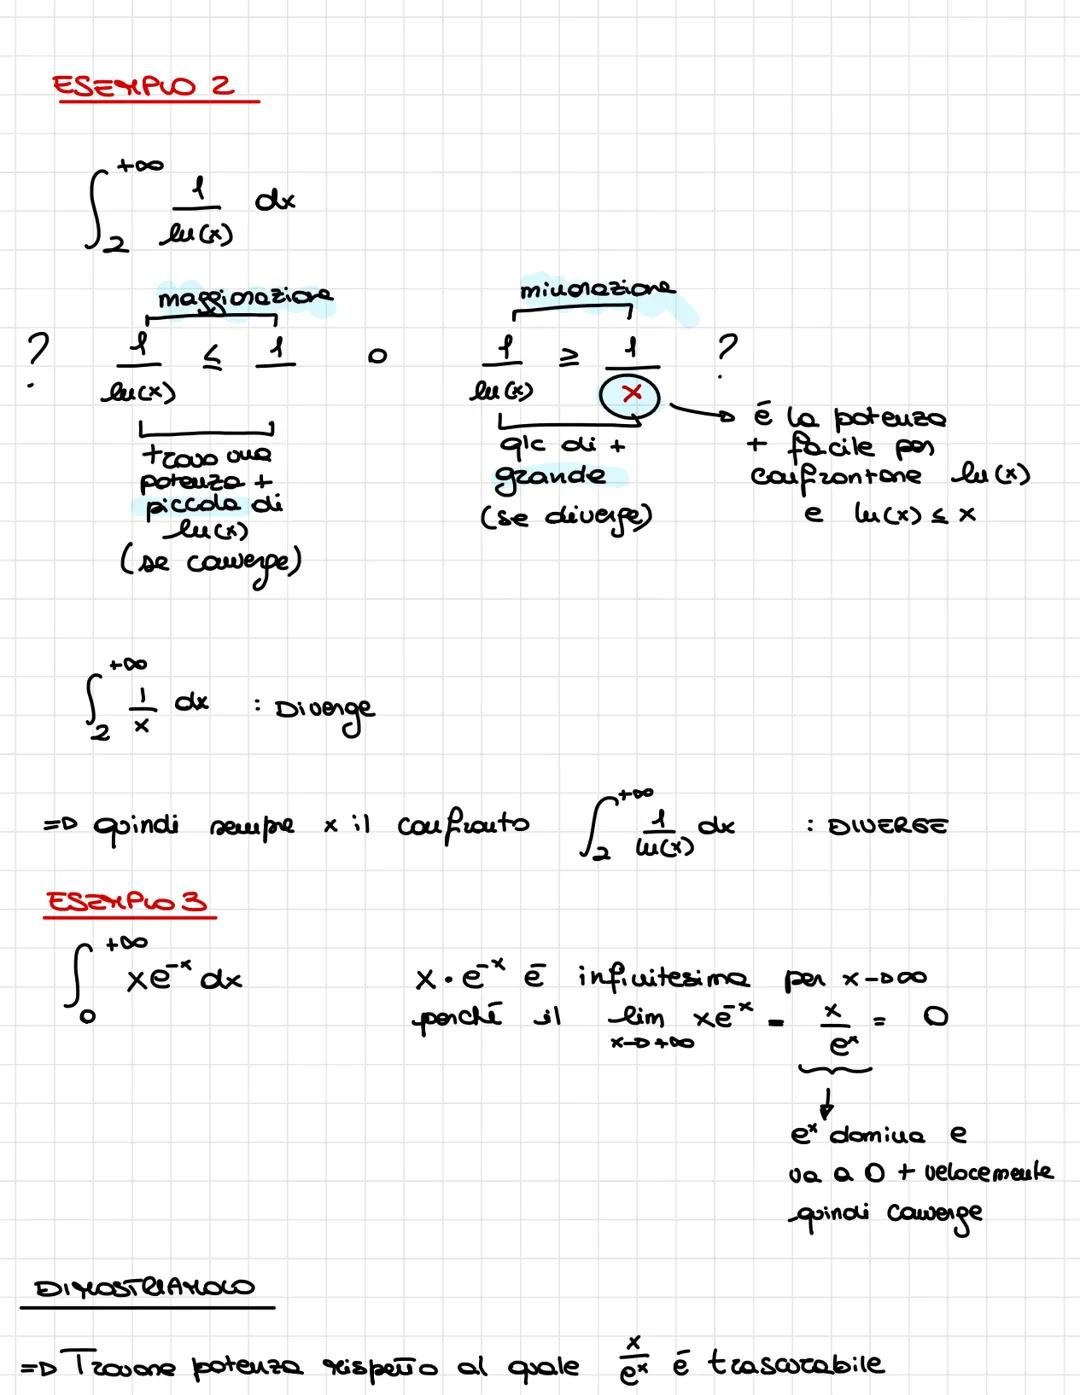 ESEMPIO 2
∫₂^+∞ 1/ln(x) dx
maggiorazione minorazione
? 1/ln(x) ≤ 1/ o 1/ln(x) ≥ 1/x ?
trovo una potenza + piccola di ln(x) (se converge)
qlc di + grande (se diverge)
è la potenza
+ facile per
confrontare ln(x)
e ln(x) ≤ x
∫₂^+∞ 1/x dx : Diverge
=> quindi sempre x il confronto ∫₂^+∞ 1/ln(x) dx : DIVERGE
ESEMPIO 3
∫₀^+∞ xe^-x dx
x · e^-x è infinitesima per x→∞
perché il lim x→+∞ xe^-x = x/e^x = 0
e^x domina e
va a 0 + velocemente
quindi converge
DIMOSTRIAMOLO
=> Trovare potenza rispetto al quale x/e^x è trascurabile